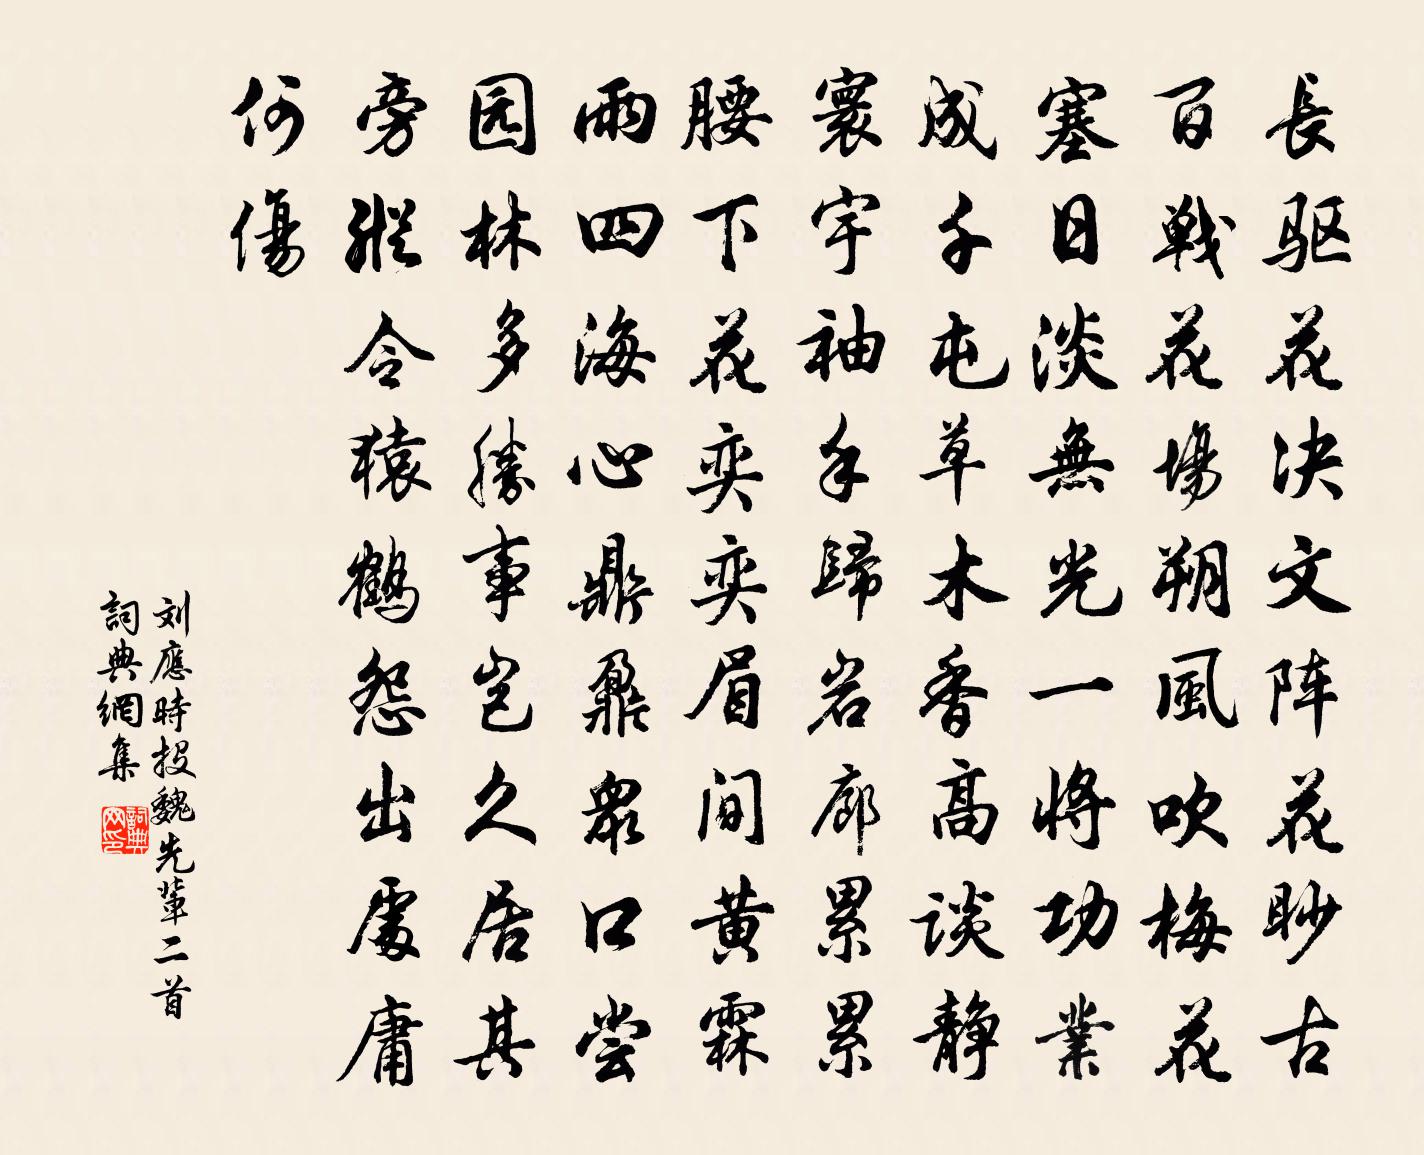 長驱花决文阵花眇古
百戰花場朔風吹梅花
塞日淡無光一將功業
成千屯草木香高谈静
寰宇袖手歸岩廊累累
腰下花奕奕眉间黄霖
雨四海心鼎鼐衆口尝
园林多勝事岂久居其
旁縱令猿鶴怨出處庸
何傷
刘應時投魏先輩二首
詞典網集
詞典